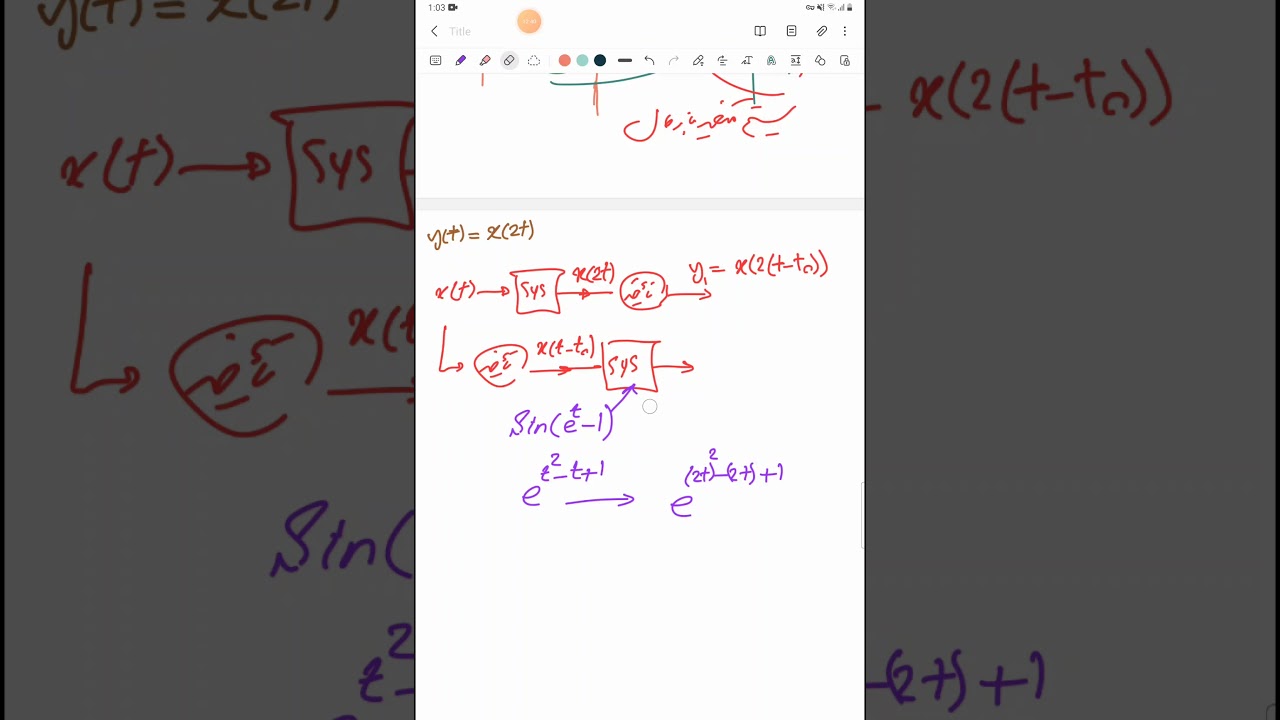 1:03
Title
y(t) = x(2t)
x(t) → Sys → x(2t) → y₁ = x(2(t-t₀))
x(t-t₀) → Sys →
Sin(e^t - 1)
e^(t² - t + 1) → e^((2t)² - (2t) + 1)